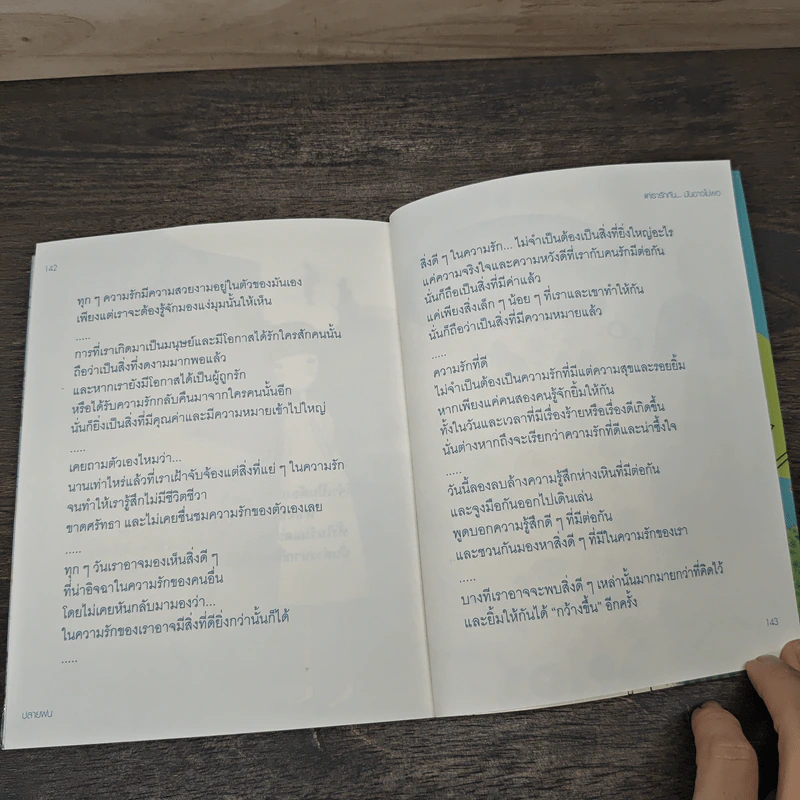 142
ทุก ๆ ความรักมีความสวยงามอยู่ในตัวของมันเอง
เพียงแต่เราจะต้องรู้จักมองแง่มุมนั้นให้เห็น
.....
การที่เราเกิดมาเป็นมนุษย์และมีโอกาสได้รักใครสักคนนั้น
ถือว่าเป็นสิ่งที่งดงามมากพอแล้ว
และหากเรายังมีโอกาสได้เป็นผู้ถูกรัก
หรือได้รับความรักกลับคืนมาจากใครคนนั้นอีก
นั่นก็ยิ่งเป็นสิ่งที่มีคุณค่าและมีความหมายเข้าไปใหญ่
.....
เคยถามตัวเองไหมว่า...
นานเท่าไหร่แล้วที่เราเฝ้าจับจ้องแต่สิ่งที่แย่ ๆ ในความรัก
จนทำให้เรารู้สึกไม่มีชีวิตชีวา
ขาดศรัทธา และไม่เคยชื่นชมความรักของตัวเองเลย
.....
ทุก ๆ วันเราอาจมองเห็นสิ่งดี ๆ
ที่น่าอิจฉาในความรักของคนอื่น
โดยไม่เคยหันกลับมามองว่า...
ในความรักของเราอาจมีสิ่งที่ดียิ่งกว่านั้นก็ได้
.....
ปลายฝน
แค่เรารักกัน... มันอาจไม่พอ
สิ่งดี ๆ ในความรัก... ไม่จำเป็นต้องเป็นสิ่งที่ยิ่งใหญ่อะไร
แค่ความจริงใจและความหวังดีที่เรากับคนรักมีต่อกัน
นั่นก็ถือเป็นสิ่งที่มีค่าแล้ว
แค่เพียงสิ่งเล็ก ๆ น้อย ๆ ที่เราและเขาทำให้กัน
นั่นก็ถือว่าเป็นสิ่งที่มีความหมายแล้ว
.....
ความรักที่ดี
ไม่จำเป็นต้องเป็นความรักที่มีแต่ความสุขและรอยยิ้ม
หากเพียงแค่คนสองคนรู้จักยิ้มให้กัน
ทั้งในวันและเวลาที่มีเรื่องร้ายหรือเรื่องดีเกิดขึ้น
นั่นต่างหากถึงจะเรียกว่าความรักที่ดีและน่าซึ้งใจ
.....
วันนี้ลองลบล้างความรู้สึกห่างเหินที่มีต่อกัน
และจูงมือกันออกไปเดินเล่น
พูดบอกความรู้สึกดี ๆ ที่มีต่อกัน
และชวนกันมองหาสิ่งดี ๆ ที่มีในความรักของเรา
.....
บางทีเราอาจจะพบสิ่งดี ๆ เหล่านั้นมากมายกว่าที่คิดไว้
และยิ้มให้กันได้ “กว้างขึ้น” อีกครั้ง
143